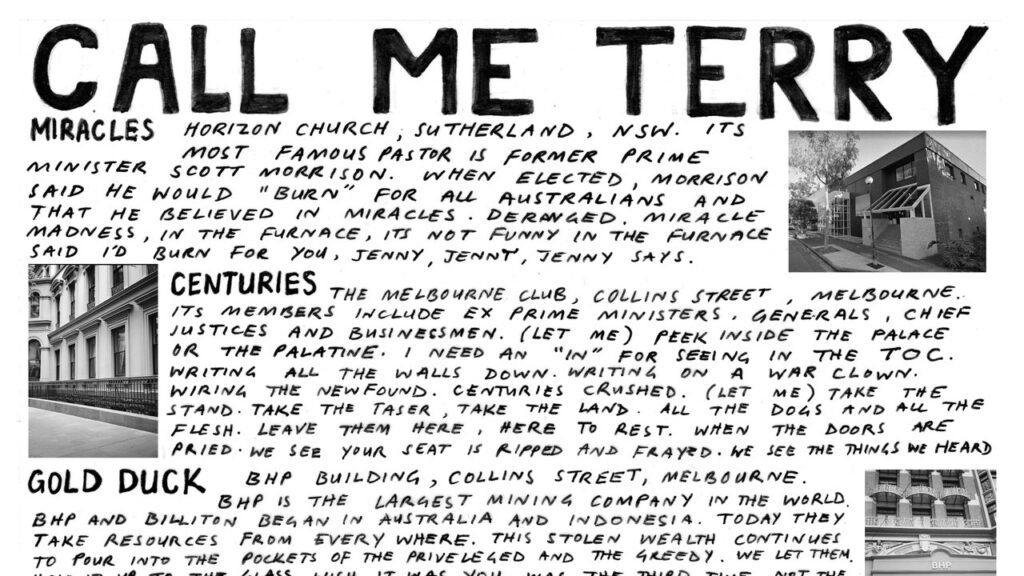 CALL ME TERRY
MIRACLES HORIZON CHURCH, SUTHERLAND, NSW. ITS
MOST FAMOUS PASTOR IS FORMER PRIME
MINISTER SCOTT MORRISON. WHEN ELECTED, MORRISON
SAID HE WOULD "BURN" FOR ALL AUSTRALIANS AND
THAT HE BELIEVED IN MIRACLES. DERANGED. MIRACLE
MADNESS, IN THE FURNACE, ITS NOT FUNNY IN THE FURNACE
SAID I'D BURN FOR YOU, JENNY, JENNY, JENNY SAYS.
CENTURIES THE MELBOURNE CLUB, COLLINS STREET, MELBOURNE.
ITS MEMBERS INCLUDE EX PRIME MINISTERS, GENERALS, CHIEF
JUSTICES AND BUSINESSMEN. (LET ME) PEEK INSIDE THE PALACE
OR THE PALATINE. I NEED AN "IN" FOR SEEING IN THE TOC.
WRITING ALL THE WALLS DOWN. WRITING ON A WAR CLOWN.
WIRING THE NEWFOUND. CENTURIES CRUSHED. (LET ME) TAKE THE
STAND. TAKE THE TASER, TAKE THE LAND. ALL THE DOGS AND ALL THE
FLESH. LEAVE THEM HERE, HERE TO REST. WHEN THE DOORS ARE
PRIED. WE SEE YOUR SEAT IS RIPPED AND FRAYED. WE SEE THE THINGS WE HEARD
GOLD DUCK BHP BUILDING, COLLINS STREET, MELBOURNE.
BHP IS THE LARGEST MINING COMPANY IN THE WORLD.
BHP AND BILLITON BEGAN IN AUSTRALIA AND INDONESIA. TODAY THEY
TAKE RESOURCES FROM EVERYWHERE. THIS STOLEN WEALTH CONTINUES
TO POUR INTO THE POCKETS OF THE PRIVELEGED AND THE GREEDY. WE LET THEM.
BHP